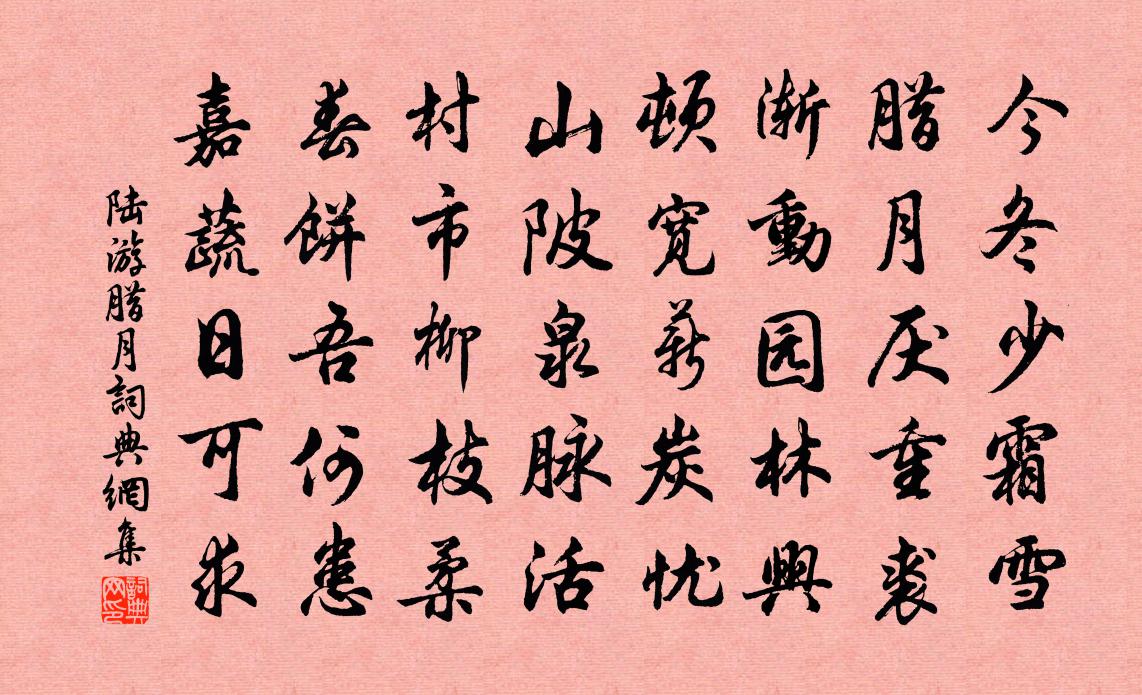 今冬少霜雪
腊月厌重裘
渐動园林興
顿宽薪炭忧
山陂泉脉活
村市柳枝柔
春餅吾何患
嘉蔬日可求
陆游腊月詞典網集
詞典网印